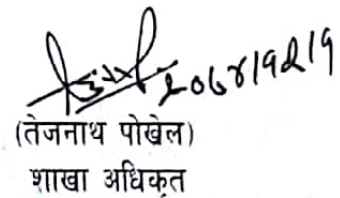 २०७४।१२।१
(तेजनाथ पोखेल)
शाखा अधिकृत